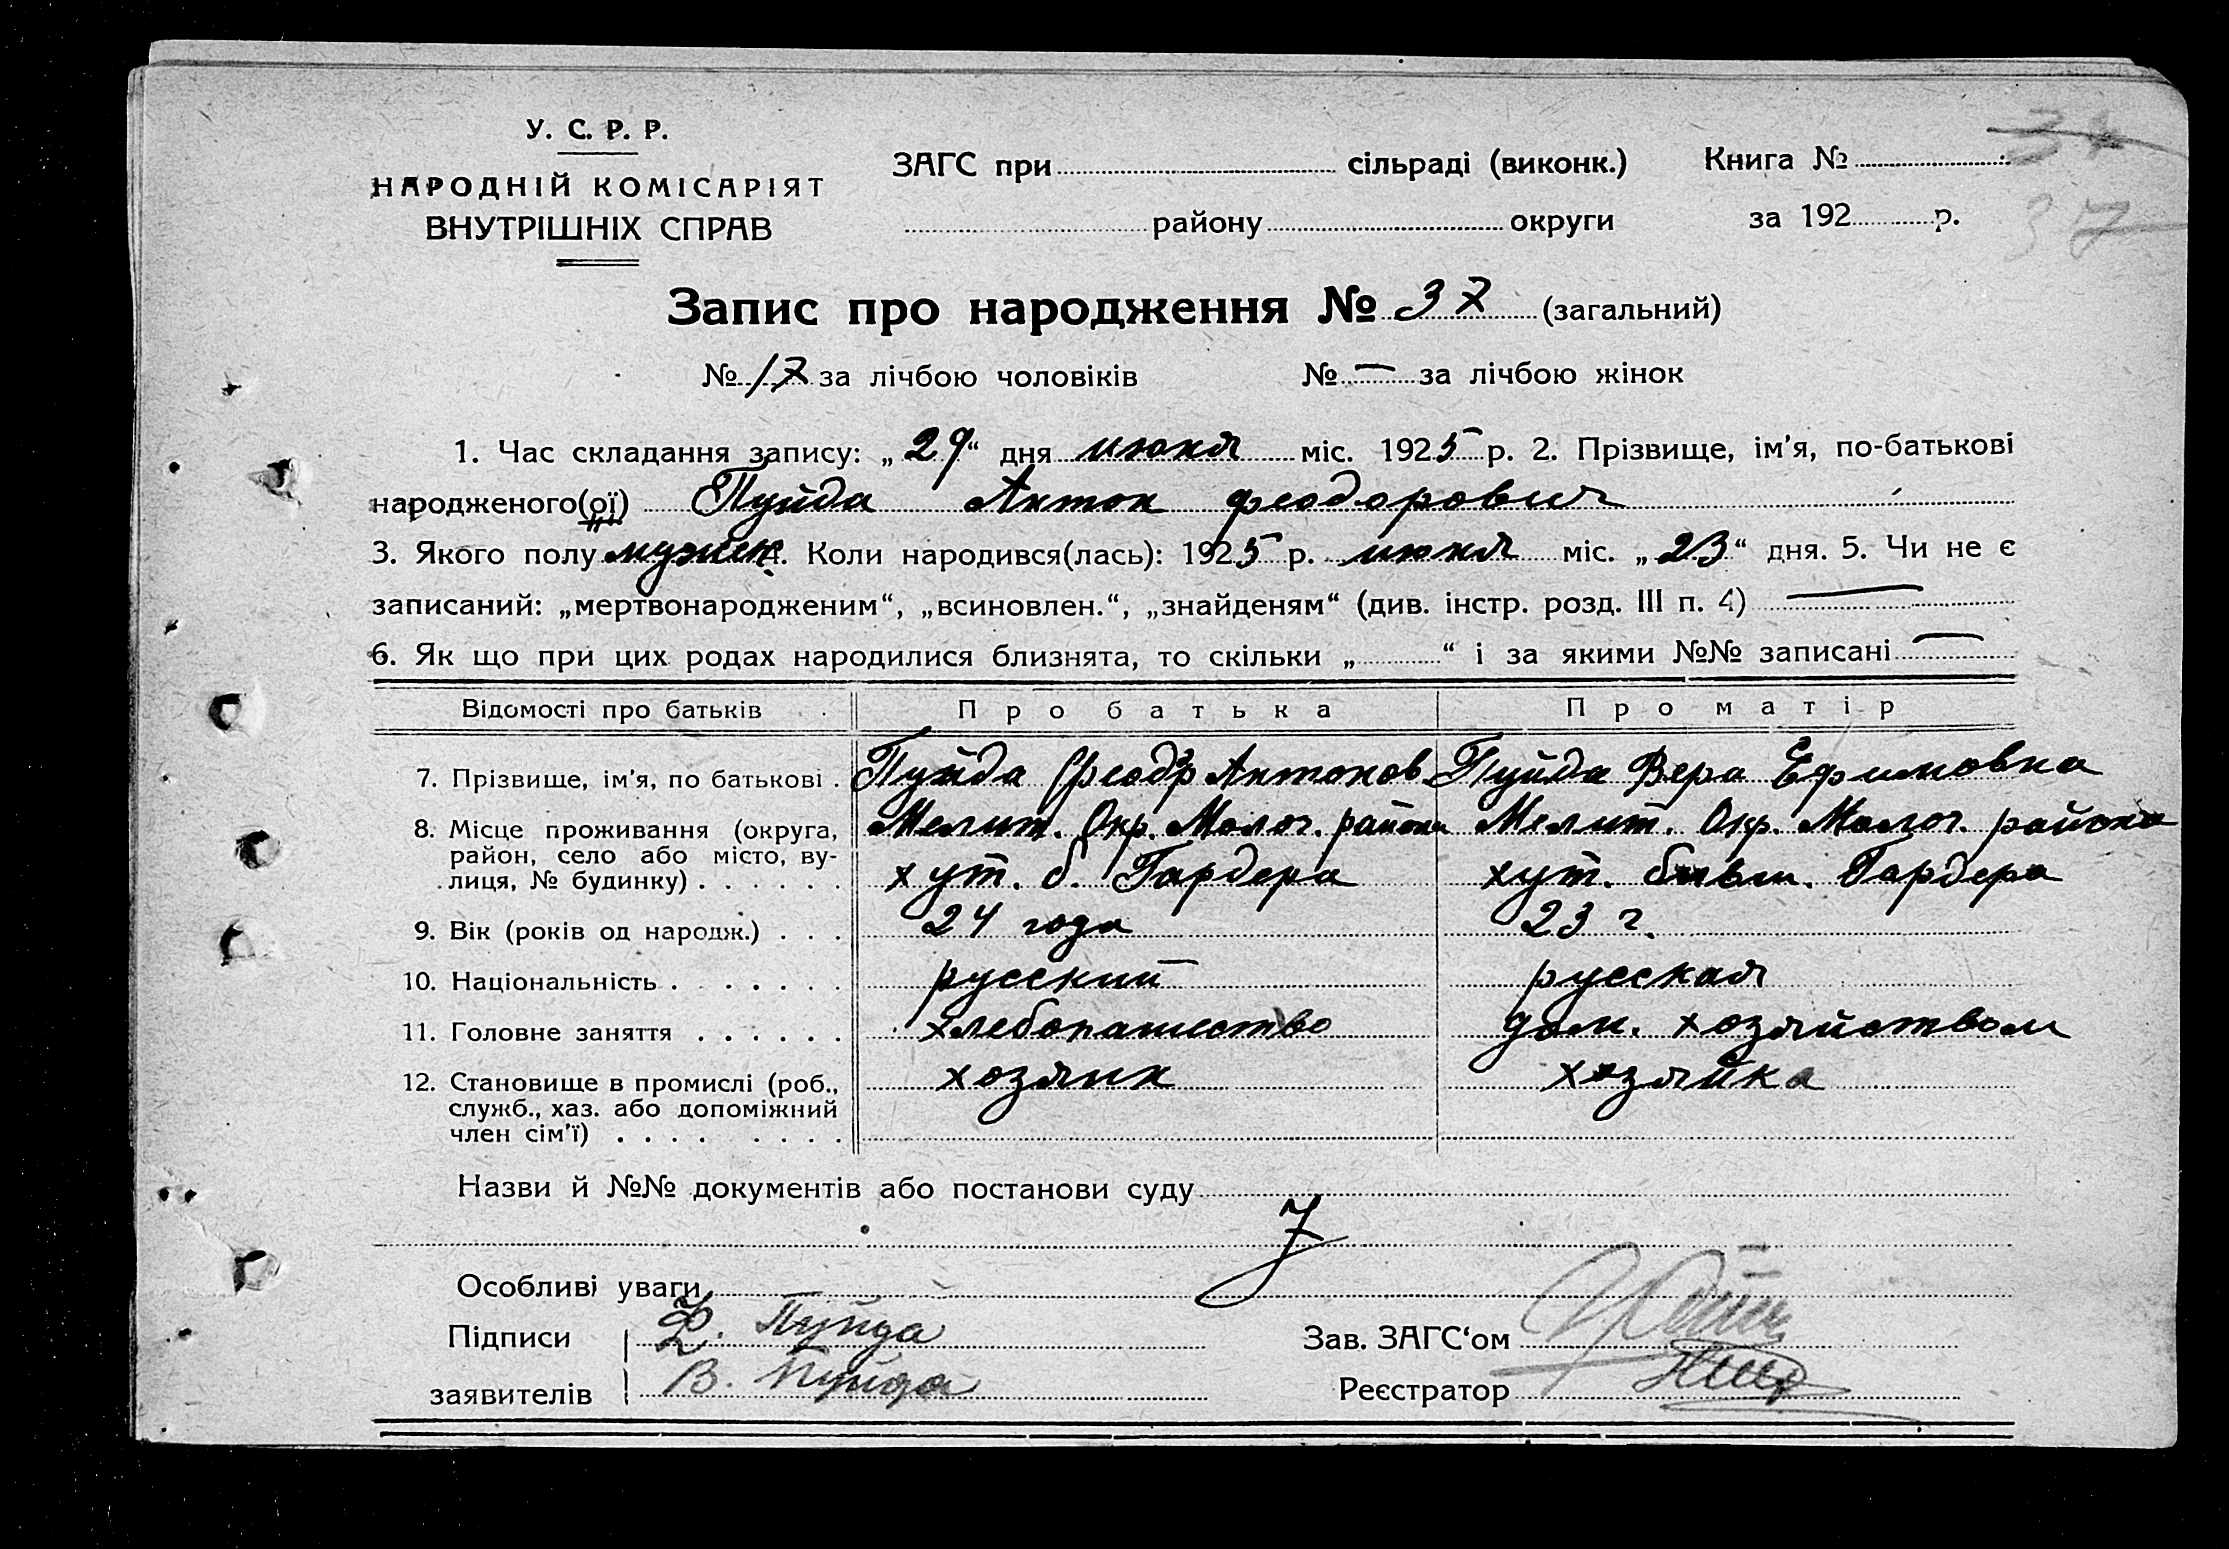 У. С. Р. Р.
НАРОДНІЙ КОМІСАРІЯТ
ВНУТРІШНІХ СПРАВ
ЗАГС при сільраді (виконк.)
району округи
Книга № 34
за 192 р. 37
Запис про народження № 37 (загальний)
№ 17 за лічбою чоловіків № — за лічбою жінок
1. Час складання запису: „29“ дня июня міс. 1925 р. 2. Прізвище, ім'я, по-батькові
народженого(ої) Пуйда Антон Феодорович
3. Якого полу мужск. 4. Коли народився(лась): 1925 р. июня міс. „23“ дня. 5. Чи не є
записаний: „мертвонародженим“, „всиновлен.“, „знайденям“ (див. інстр. розд. III п. 4) —
6. Як що при цих родах народилися близнята, то скільки „ “ і за якими №№ записані —
Відомості про батьків Про батька Про матір
7. Прізвище, ім'я, по батькові . Пуйда Феодор Антонов. Пуйда Вера Ефимовна
8. Місце проживання (округа, район, село або місто, вулиця, № будинку) . . . . . .
Мелит. Окр. Молоч. района Мелит. Окр. Молоч. района
хут. б. Гардера хут. бывш. Гардера
9. Вік (років од народж.) . . . 24 года 23 г.
10. Національність . . . . . . . русский русская
11. Головне заняття . . . . . . хлебопашество дом. хозяйством
12. Становище в промислі (роб., служб., хаз. або допоміжний член сім'ї) . . . . . . . .
хозяин хозяйка
Назви й №№ документів або постанови суду
Особливі уваги
Підписи Ф. Пуйда
заявителів В. Пуйда
Зав. ЗАГС'ом
Реєстратор